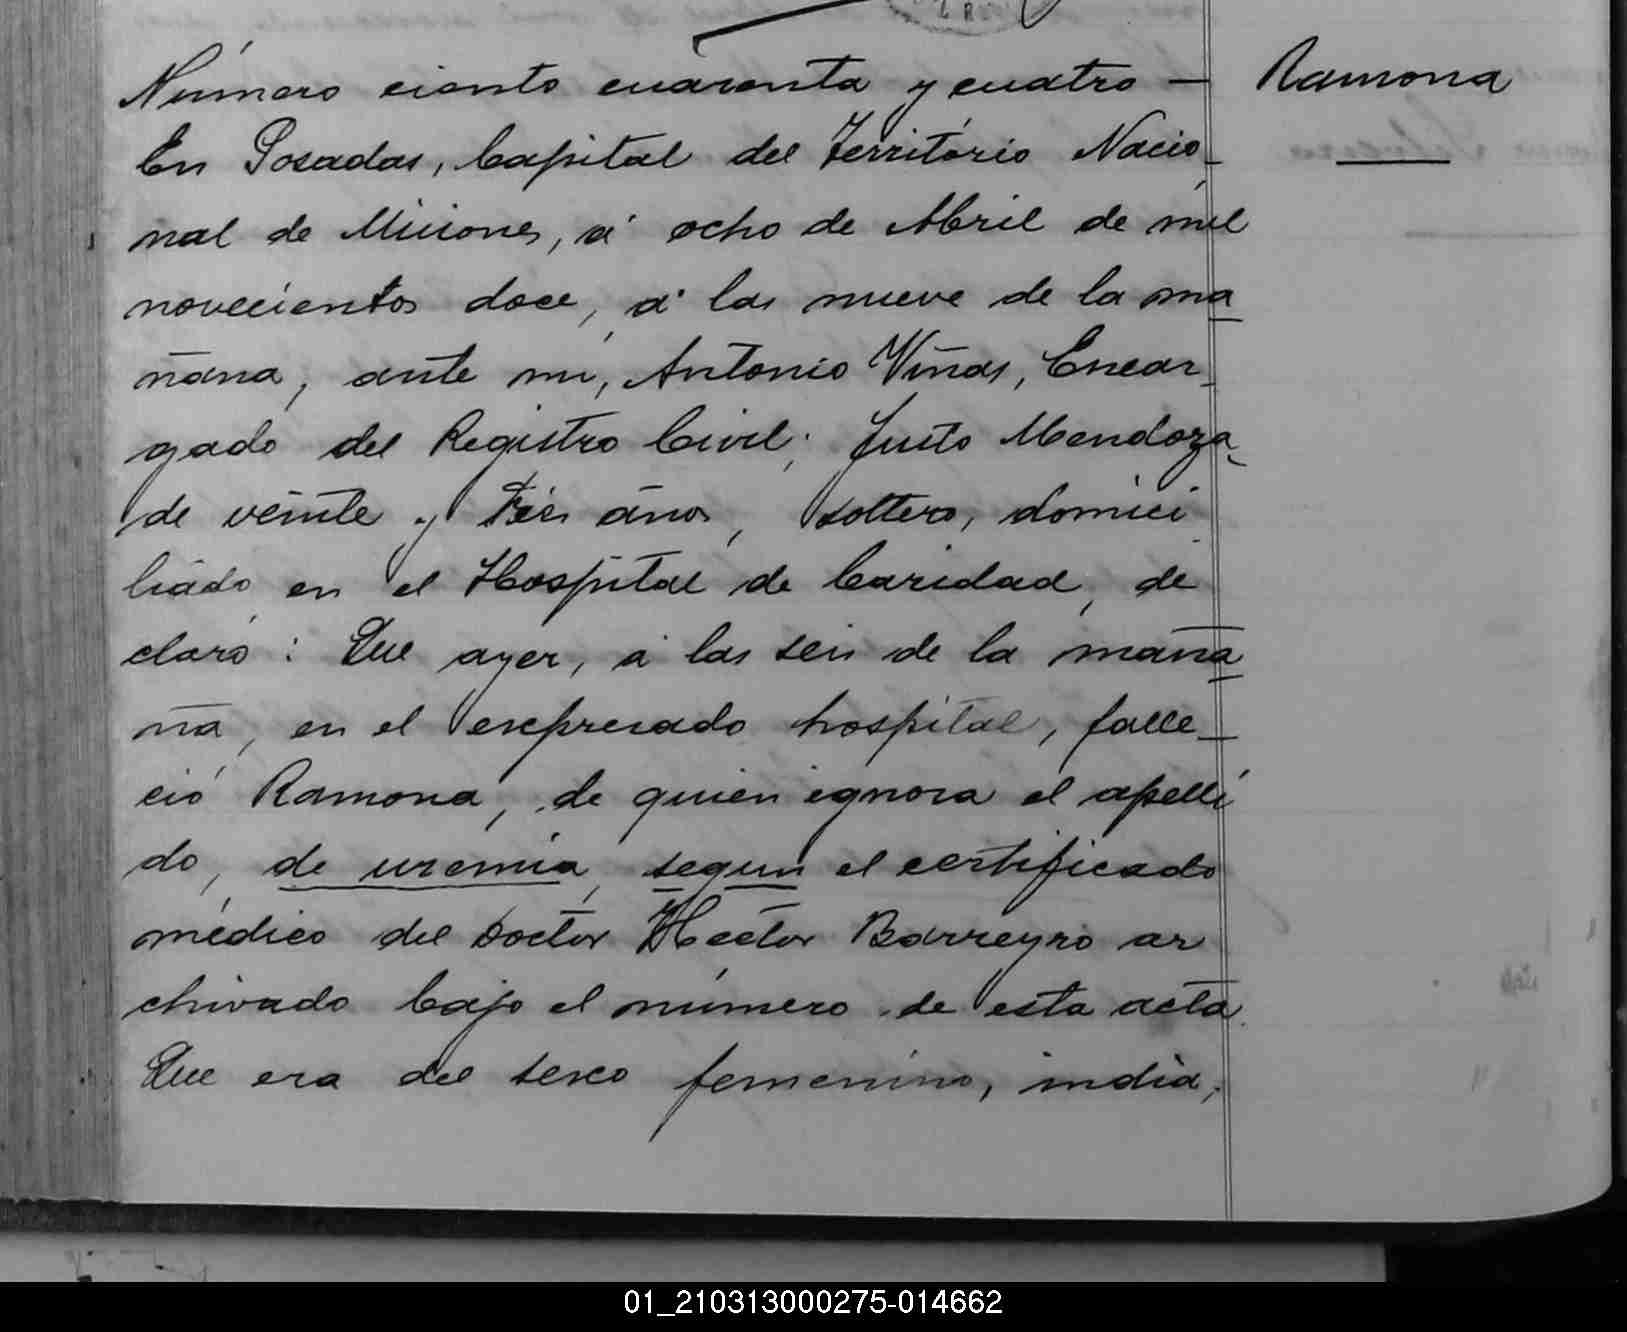 Número ciento cuarenta y cuatro — Ramona
En Posadas, Capital del Territorio Nacio_
nal de Misiones, á ocho de Abril de mil
novecientos doce, á las nueve de la ma_
ñana, ante mi, Antonio Viñas, Encar_
gado del Registro Civil; Justo Mendoza
de veinte y tres años, soltero, domici
liado en el Hospital de Caridad, de
claró: Que ayer, á las seis de la maña
ña, en el expresado hospital, falle_
ció Ramona, de quien ignora el apelli
do, de uremia, segun el certificado
médico del Doctor Hector Barreyro ar
chivado bajo el número de esta acta.
Que era del sexo femenino, india,
01_210313000275-014662